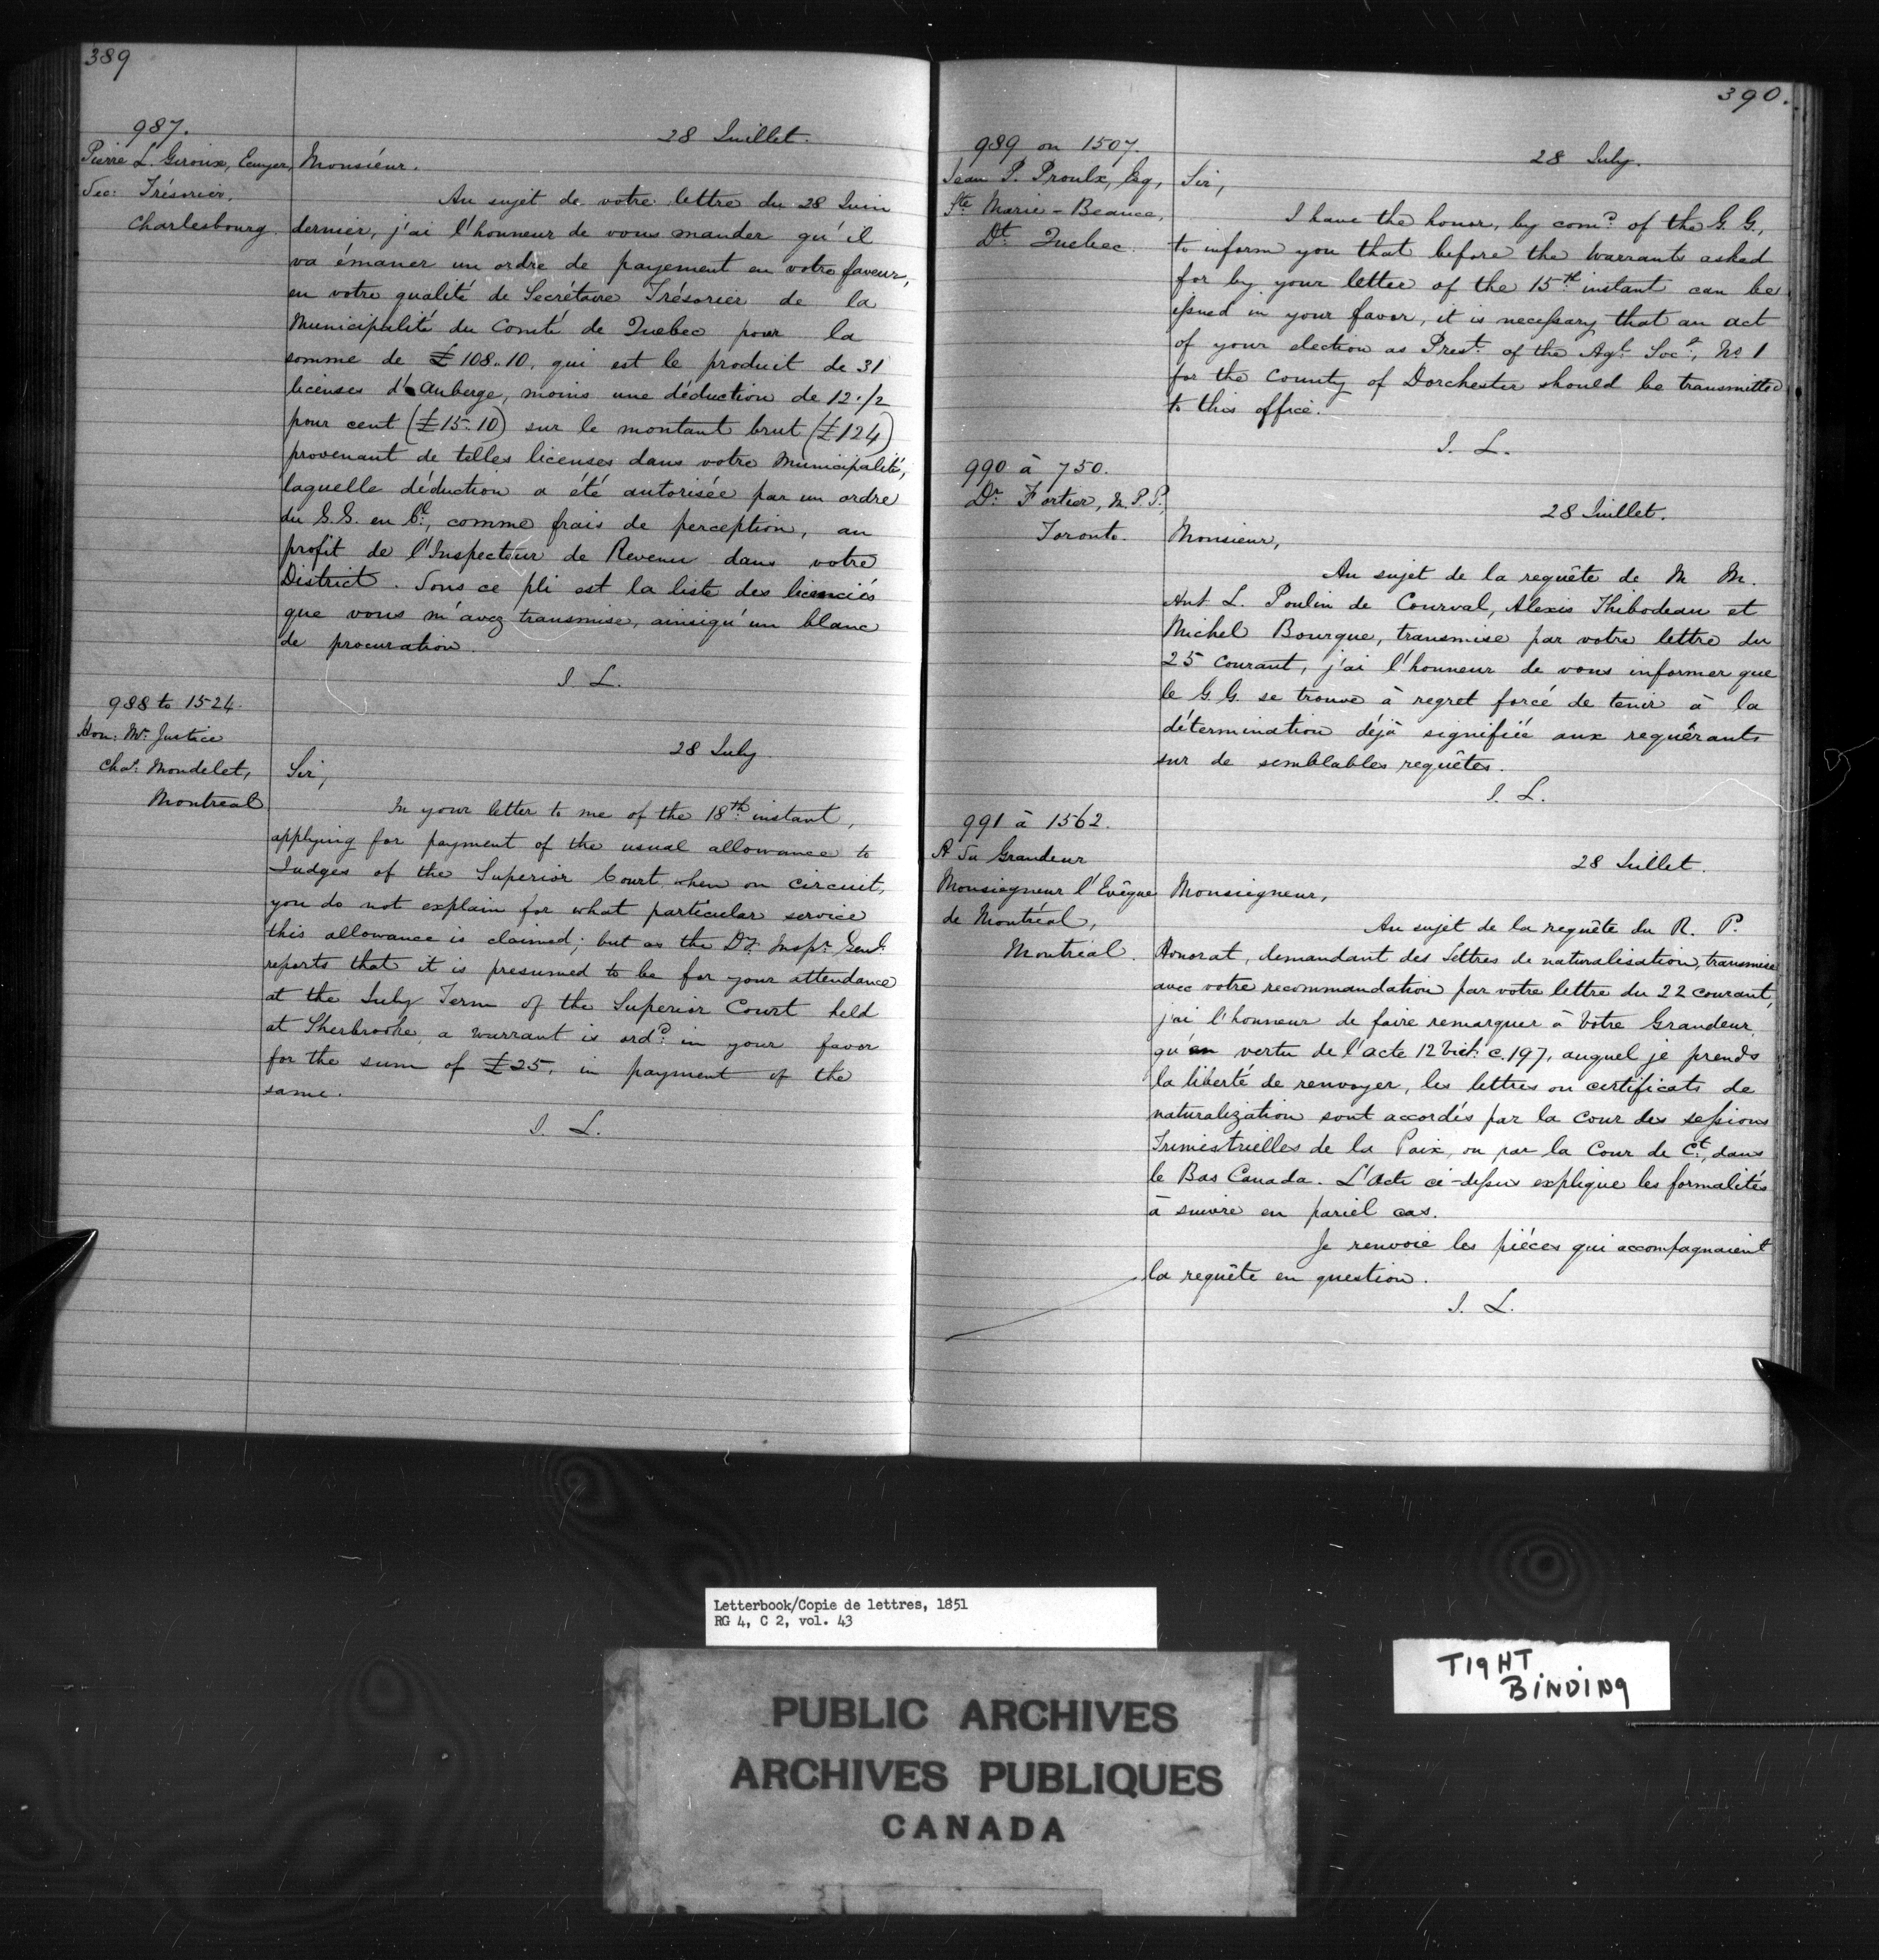 389
987.
28 Juillet.
Pierre L. Giroux, Ecuyer,
Sec: Trésorier,
Charlesbourg.
Monsiéur.
Au sujet de votre lettre du 28 Juin
dernier, j'ai l'honneur de vous mander qu'il
va émaner un ordre de payement en votre faveur,
en votre qualité de Secrétaire Trésorier de la
Municipalité du Comté de Quebec pour la
somme de £108..10, qui est le produit de 31
licenses d'Auberge, moins une déduction de 12 1/2
pour cent (£15.10) sur le montant brut (£124)
provenant de telles licenses dans votre Municipalité,
laquelle déduction a été autorisée par un ordre
du G.G. en Cl., comme frais de perception, au
profit de l'Inspecteur de Revenu dans votre
District. Sous ce pli est la liste des licenciés
que vous m'avez transmise, ainsiqu'un blanc
de procuration.
J. L.
988 to 1524.
Hon: Mr. Justice
Chas. Mondelet,
Montreal
28 July
Sir,
In your letter to me of the 18th instant,
applying for payment of the usual allowance to
Judges of the Superior Court when on circuit,
you do not explain for what particular service
this allowance is claimed; but as the Dy. Inspr. Genl.
reports that it is presumed to be for your attendance
at the July Term of the Superior Court held
at Sherbrooke, a warrant is ordd. in your favor
for the sum of £25, in payment of the
same.
J. L.
390.
989 on 1507.
Jean P. Proulx, Esq,
Ste. Marie - Beauce,
Dt. Quebec.
28 July.
Sir,
I have the honor, by comd. of the G. G.,
to inform you that before the Warrants asked
for by your letter of the 15th instant can be
issued in your favor, it is necessary that an act
of your election as Prest. of the Agl. Socy., No 1
for the County of Dorchester should be transmitted
to this office.
J. L.
990 à 750.
Dr. Fortier, M.P.P.,
Toronto.
28 Juillet.
Monsieur,
Au sujet de la requête de M M.
Ant L. Poulin de Courval, Alexis Thibodeau et
Michel Bourque, transmise par votre lettre du
25 Courant, j'ai l'honneur de vous informer que
le G. G. se trouve à regret forcé de tenir à la
détermination déjà signifiée aux requérants
sur de semblables requêtes.
J. L.
991 à 1562.
A Sa Grandeur
Monsiegneur l'Evêque
de Montréal,
Montréal.
28 Juillet.
Monsiegneur,
Au sujet de la requête du R. P.
Honorat, demandant des Lettres de naturalisation, transmise
avec votre recommandation par votre lettre du 22 courant,
j'ai l'honneur de faire remarquer à Votre Grandeur
qu'en vertu de l'acte 12 Vict. c. 197, auquel je prends
la liberté de renvoyer, les lettres ou certificats de
naturalization sont accordés par la Cour des sessions
Trimestrielles de la Paix, ou par la Cour de Ct., dans
le Bas Canada. L'Acte ci-dessus explique les formalités
à suivre en pariel cas.
Je renvoie les piéces qui accompagnaient
la requête en question.
J. L.
Letterbook/Copie de lettres, 1851
RG 4, C 2, vol. 43
TIGHT
BINDING
PUBLIC ARCHIVES
ARCHIVES PUBLIQUES
CANADA